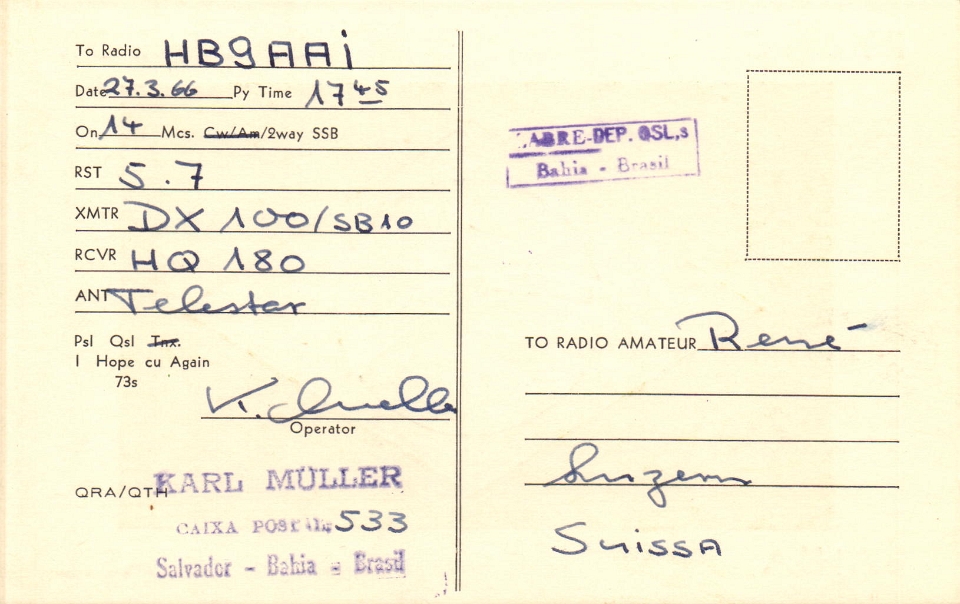 To Radio HB9AAi
Date 27.3.66 Py Time 1745
On 14 Mcs. Cw/Am/2way SSB
RST 5.7
XMTR DX 100/SB10
RCVR HQ 180
ANT Telestar
Psl Qsl Tnx.
I Hope cu Again
73s
K. Muller
Operator
QRA/QTH KARL MÜLLER
CAIXA POSTAL, 533
Salvador - Bahia - Brasil
LABRE-DEP. QSL,s
Bahia - Brasil
TO RADIO AMATEUR René
Luzern
Suissa